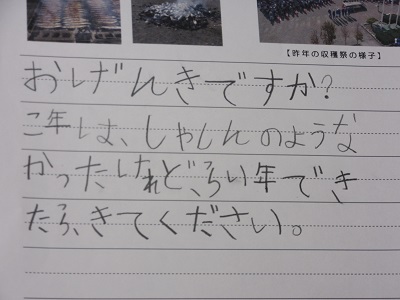 【昨年の収穫祭の様子】
おげんきですか?
こ年は、しゃしんのような
かったけれど、らい年でき
たらきてください。